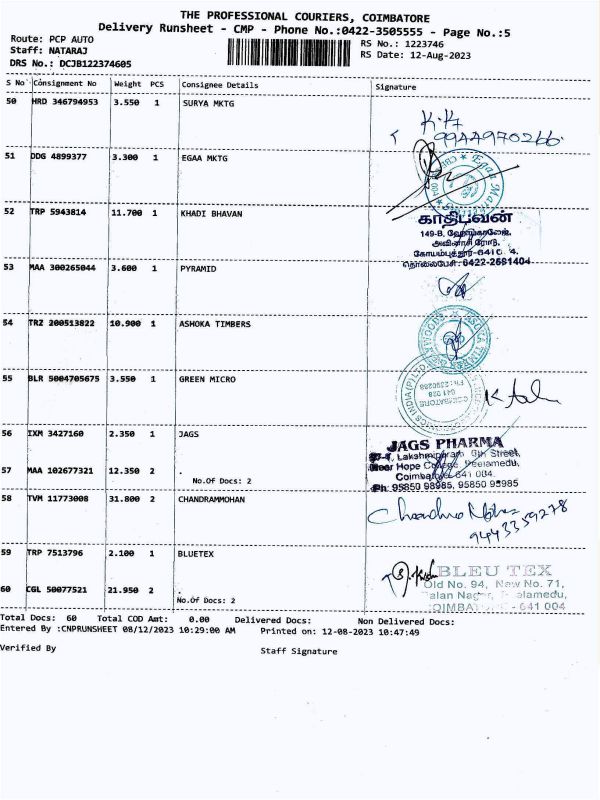 THE PROFESSIONAL COURIERS, COIMBATORE
Delivery Runsheet - CMP - Phone No.:0422-3505555 - Page No.:5
Route: PCP AUTO
Staff: NATARAJ
DRS No.: DCJB122374605
RS No.: 1223746
RS Date: 12-Aug-2023
S No Consignment No Weight PCS Consignee Details Signature
50 HRD 346794953 3.550 1 SURYA MKTG
9944970266
51 DDG 4899377 3.300 1 EGAA MKTG
52 TRP 5943814 11.700 1 KHADI BHAVAN
காதிபவன்
அவினாசி ரோடு,
தொலைபேசி: 0422-2581404
53 MAA 300265044 3.600 1 PYRAMID
54 TRZ 200513822 10.900 1 ASHOKA TIMBERS
55 BLR 5004705675 3.550 1 GREEN MICRO
56 IXM 3427160 2.350 1 JAGS
JAGS PHARMA
Lakshmipuram 6th Street,
Near Hope College, Peelamedu,
Coimbatore 641 004.
Ph: 95850 98985, 95850 95985
57 MAA 102677321 12.350 2 .
No.Of Docs: 2
58 TVM 11773008 31.800 2 CHANDRAMMOHAN
9443359278
59 TRP 7513796 2.100 1 BLUETEX
BLEU TEX
Old No. 94, New No. 71,
- 641 004
60 CGL 50077521 21.950 2 .
No.Of Docs: 2
Total Docs: 60 Total COD Amt: 0.00 Delivered Docs: Non Delivered Docs:
Entered By :CNPRUNSHEET 08/12/2023 10:29:00 AM Printed on: 12-08-2023 10:47:49
Verified By Staff Signature